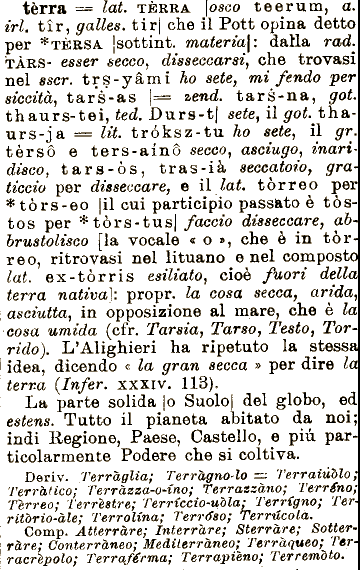 tèrra = lat. TÈRRA |osco teerum, a.
irl. tîr, galles. tir| che il Pott opina detto
per *TÈRSA |sottint. materia|: dalla rad.
TÀRS- esser secco, disseccarsi, che trovasi
nel sscr. tṛṣ-yâmi ho sete, mi fendo per
siccità, tarš-as |= zend. tarš-na, got.
thaurs-tei, ted. Durs-t| sete, il got. tha-
urs-ja = lit. tróksz-tu ho sete, il gr.
tèrsô e ters-aínô secco, asciugo, inari-
disco, tars-òs, tras-ià seccatoio, gra-
ticcio per disseccare, e il lat. tòrreo per
*tòrs-eo |il cui participio passato è tòs-
tos per *tòrs-tus| faccio disseccare, ab-
brustolisco [la vocale « o », che è in tòr-
reo, ritrovasi nel lituano e nel composto
lat. ex-tòrris esiliato, cioè fuori della
terra nativa]: propr. la cosa secca, arida,
asciutta, in opposizione al mare, che è la
cosa umida (cfr. Tarsia, Tarso, Testo, Tor-
rido). L'Alighieri ha ripetuto la stessa
idea, dicendo « la gran secca » per dire la
terra (Infer. XXXIV. 113).
La parte solida |o Suolo| del globo, ed
estens. Tutto il pianeta abitato da noi;
indi Regione, Paese, Castello, e più par-
ticolarmente Podere che si coltiva.
Deriv. Terràglia; Terràgno-lo = Terraiuòlo;
Terràtico; Terràzza-o-íno; Terrazzàno; Terréno;
Tèrreo; Terrèstre; Terríccio-uòla; Terrígno; Ter-
ritòrio-àle; Terrolína; Terróso; Terrúcola.
Comp. Atterràre; Interràre; Sterràre; Sotter-
ràre; Conterràneo; Mediterràneo; Terràqueo; Ter-
racrèpolo; Terraférma; Terrapièno; Terremòto.